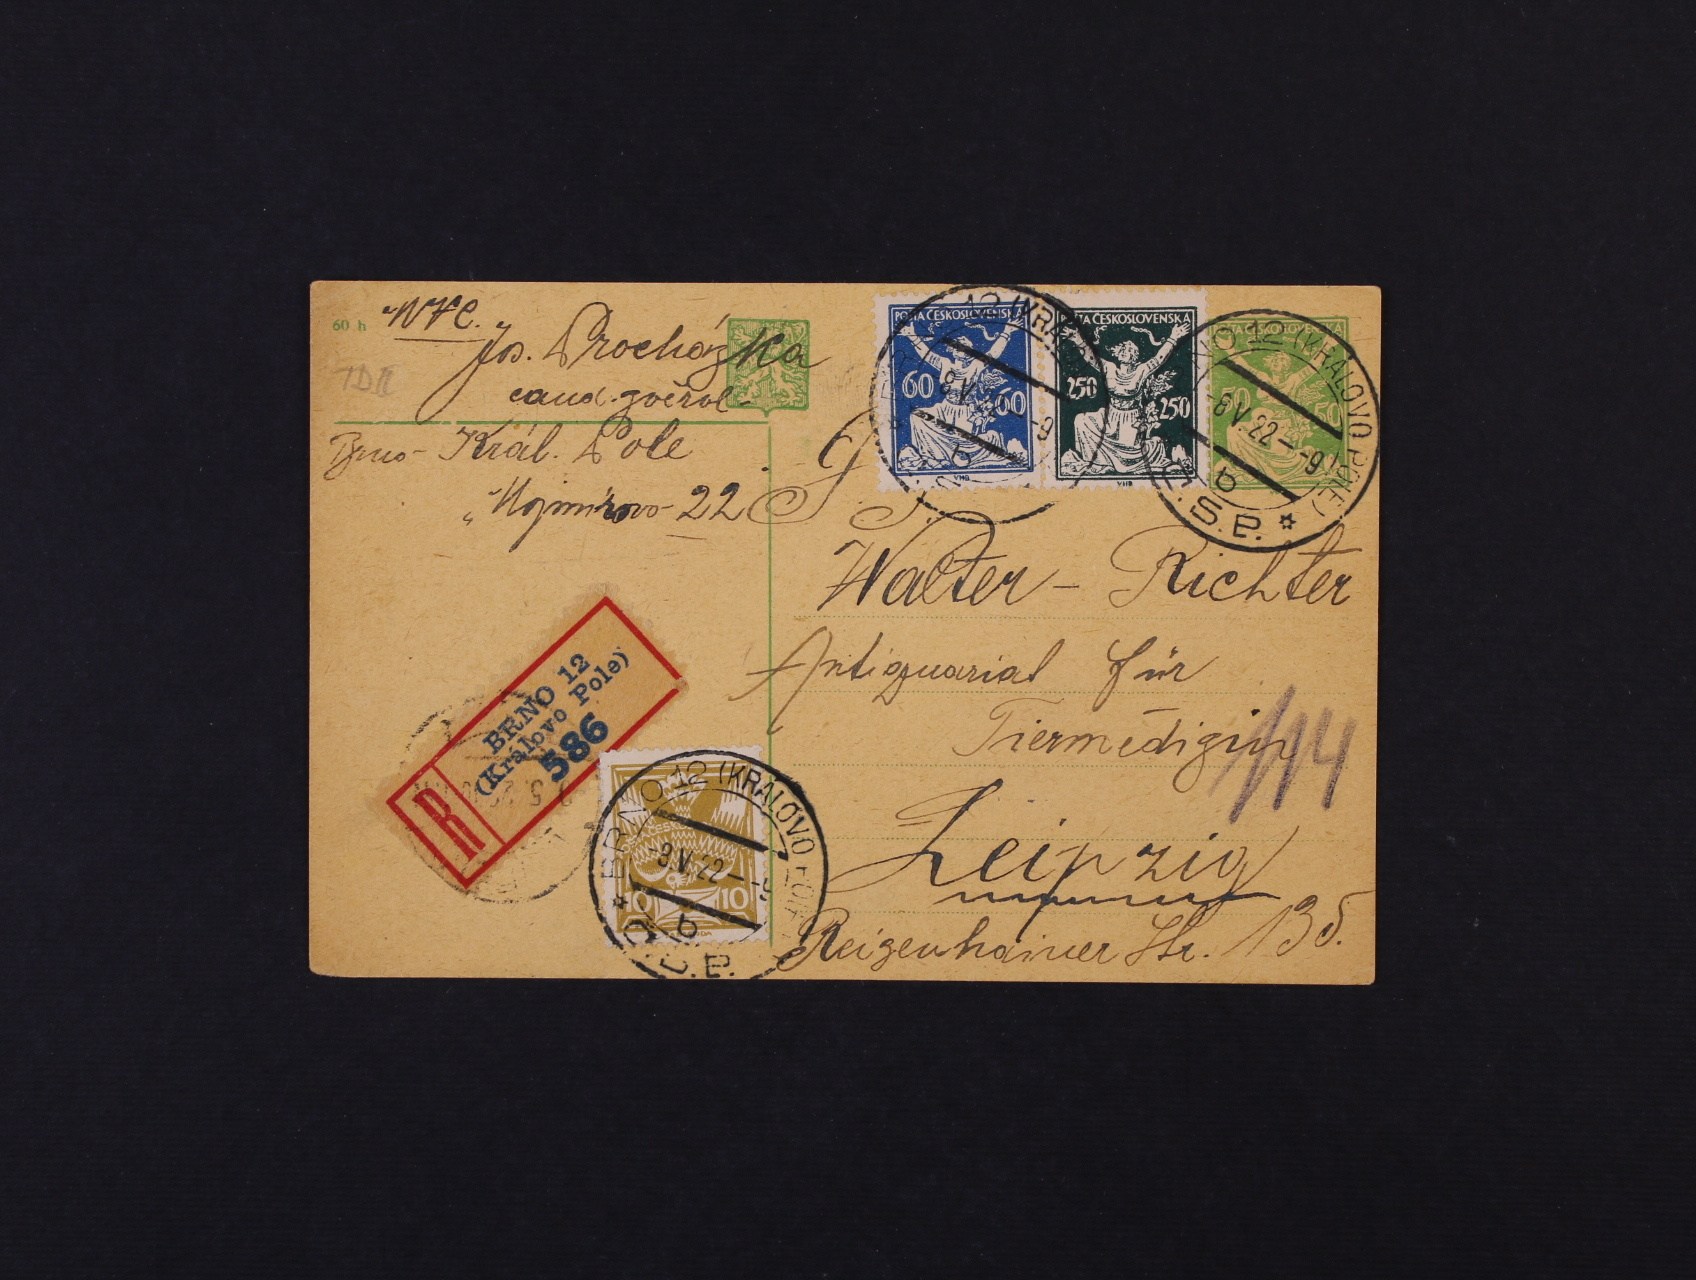 60 h
MVC.
Jos. Procházka
cand. zvěrol.
Brno - Král. Pole
Mojmírova 22
POŠTA ČESKOSLOVENSKÁ
60 60
VHB
POŠTA ČESKOSLOVENSKÁ
250 250
VHB
POŠTA ČESKOSLOVENSKÁ
50 50
BRNO 12 (KRÁLOVO POLE)
-8.V.22--9
b
Č.S.P.
Walter - Richter
Antiquariat für
Tiermedizin
114
Leipzig
Reizenhainer Str. 135.
BRNO 12
(Královo Pole)
586
R
10 10
BRNO 12 (KRÁLOVO POLE)
-8.V.22
b
Č.S.P.